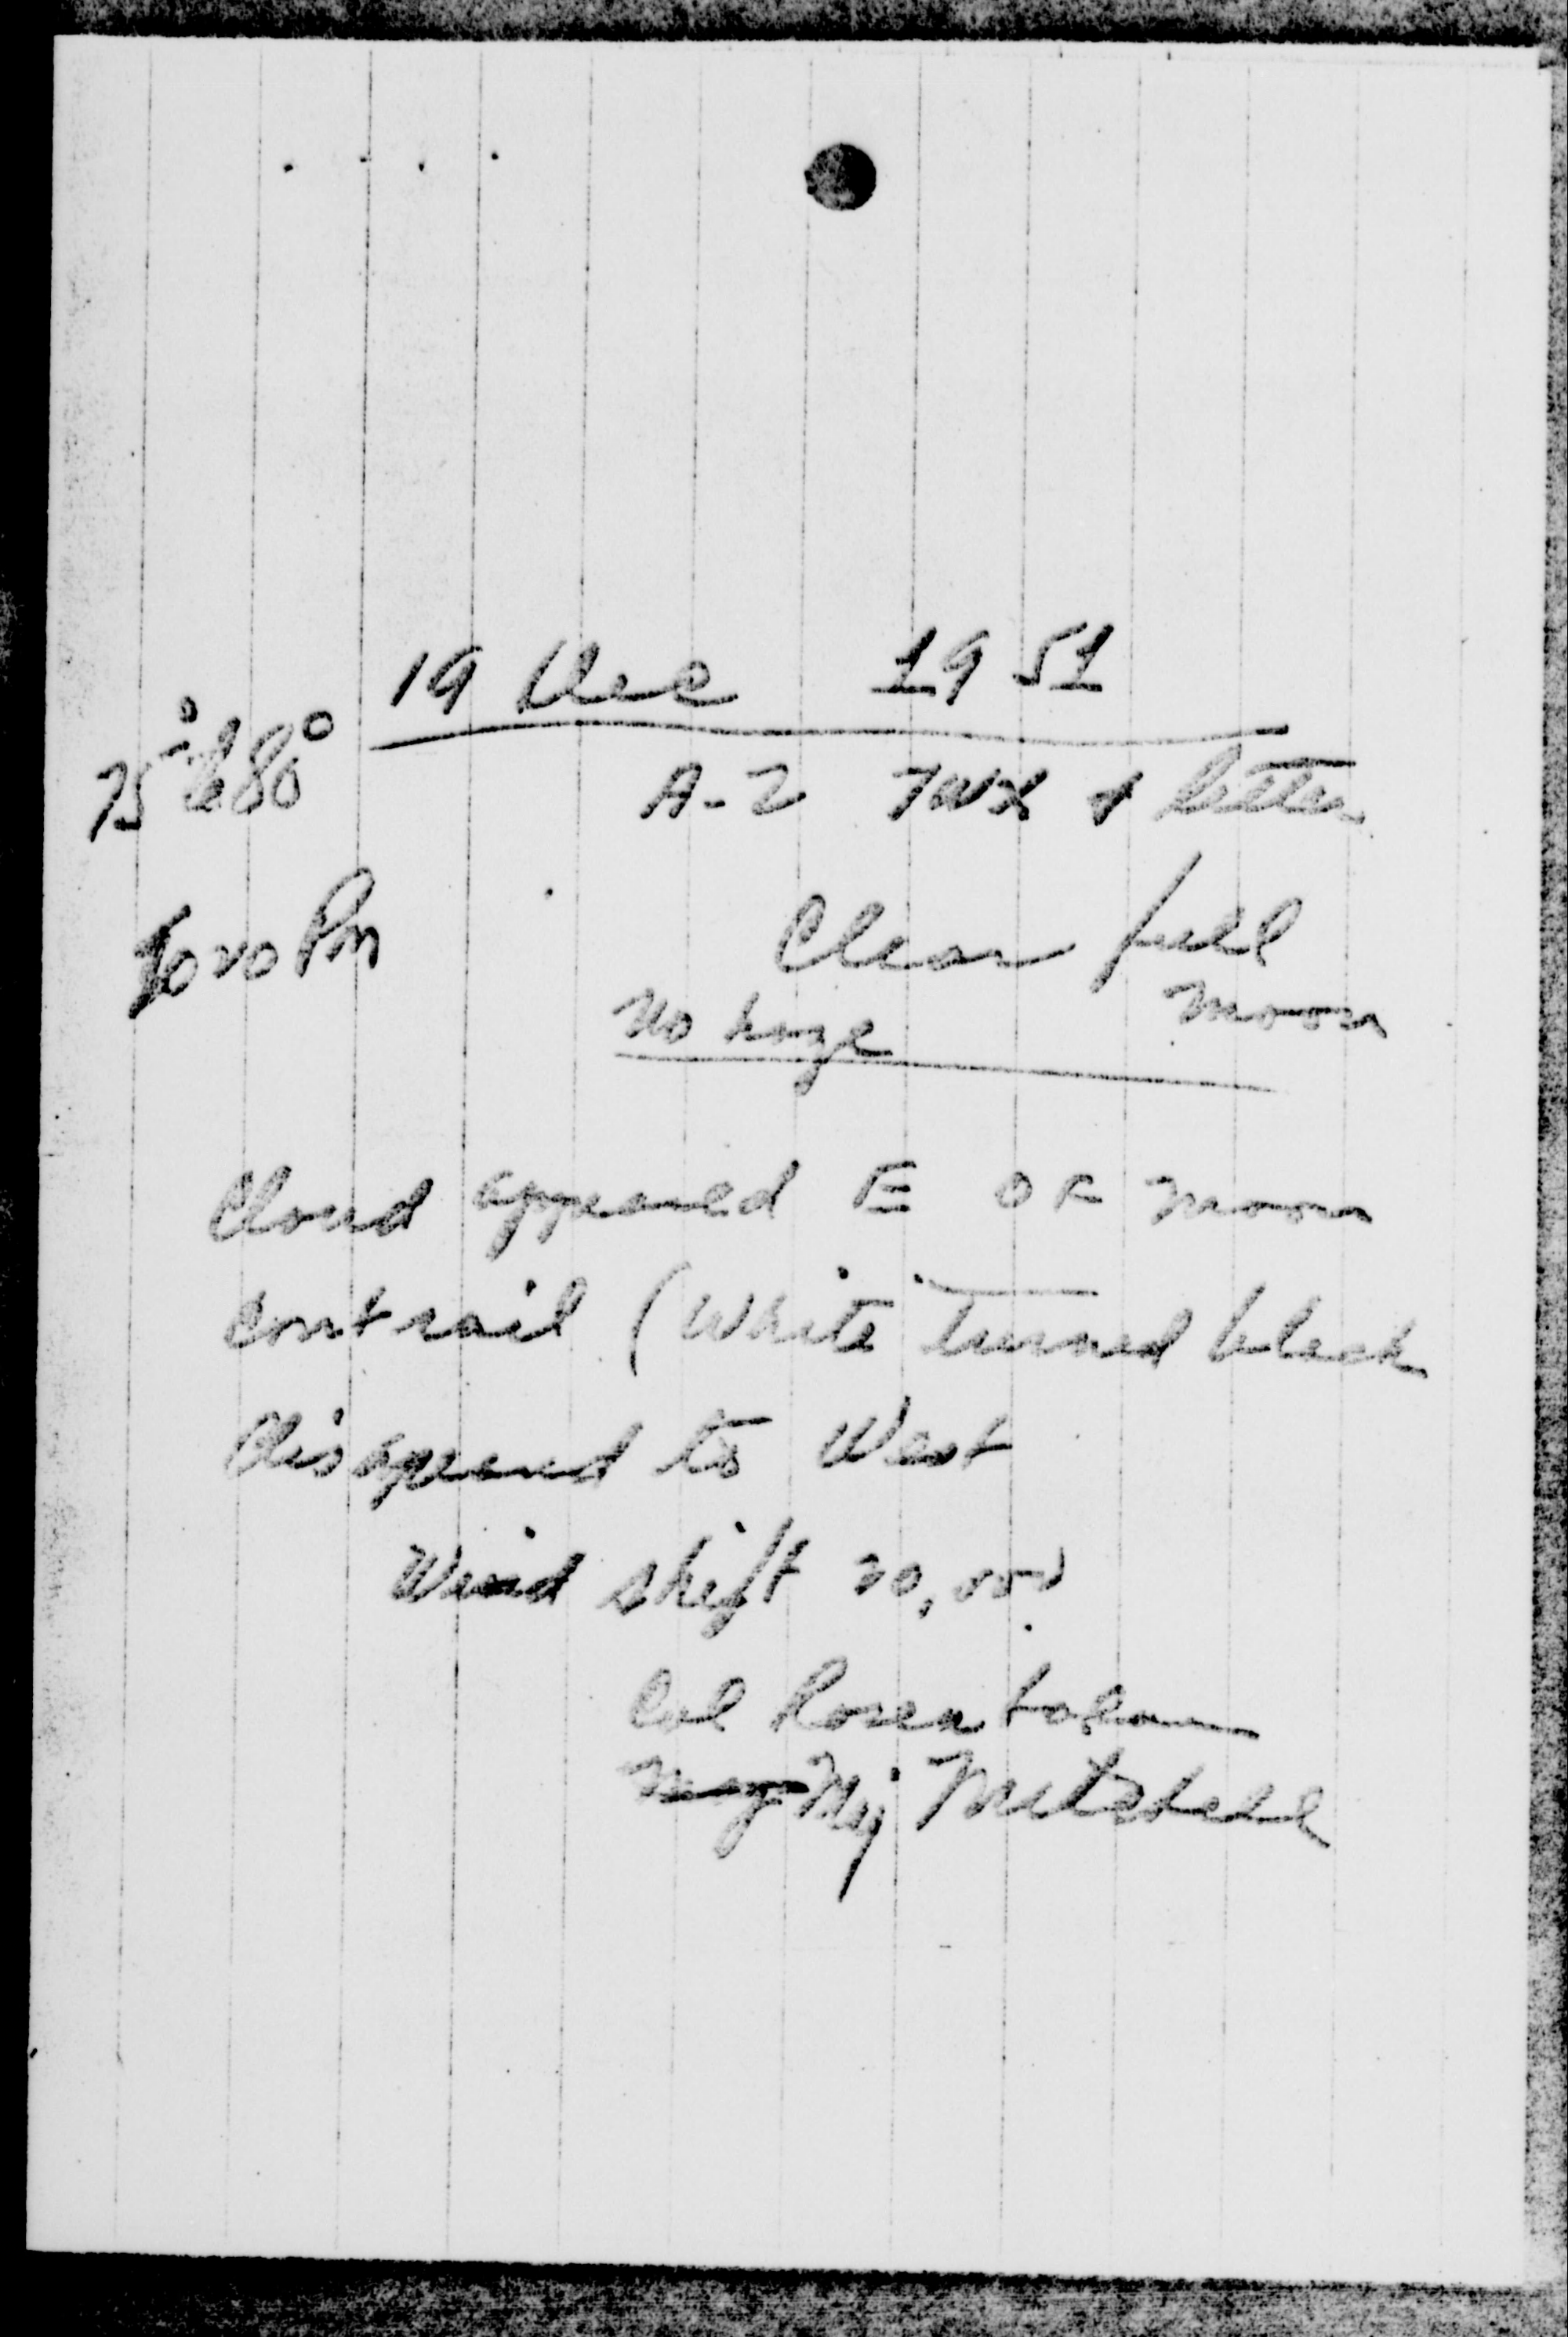 19 Dec 1951
75° to 80°
A-2 TWX & letter
Clear full
moon
PM
No haze
Cloud appeared E OF moon
contrail (white turned black
Disapeared to West
Wind shift 20,000
Col
Maj Mitchell